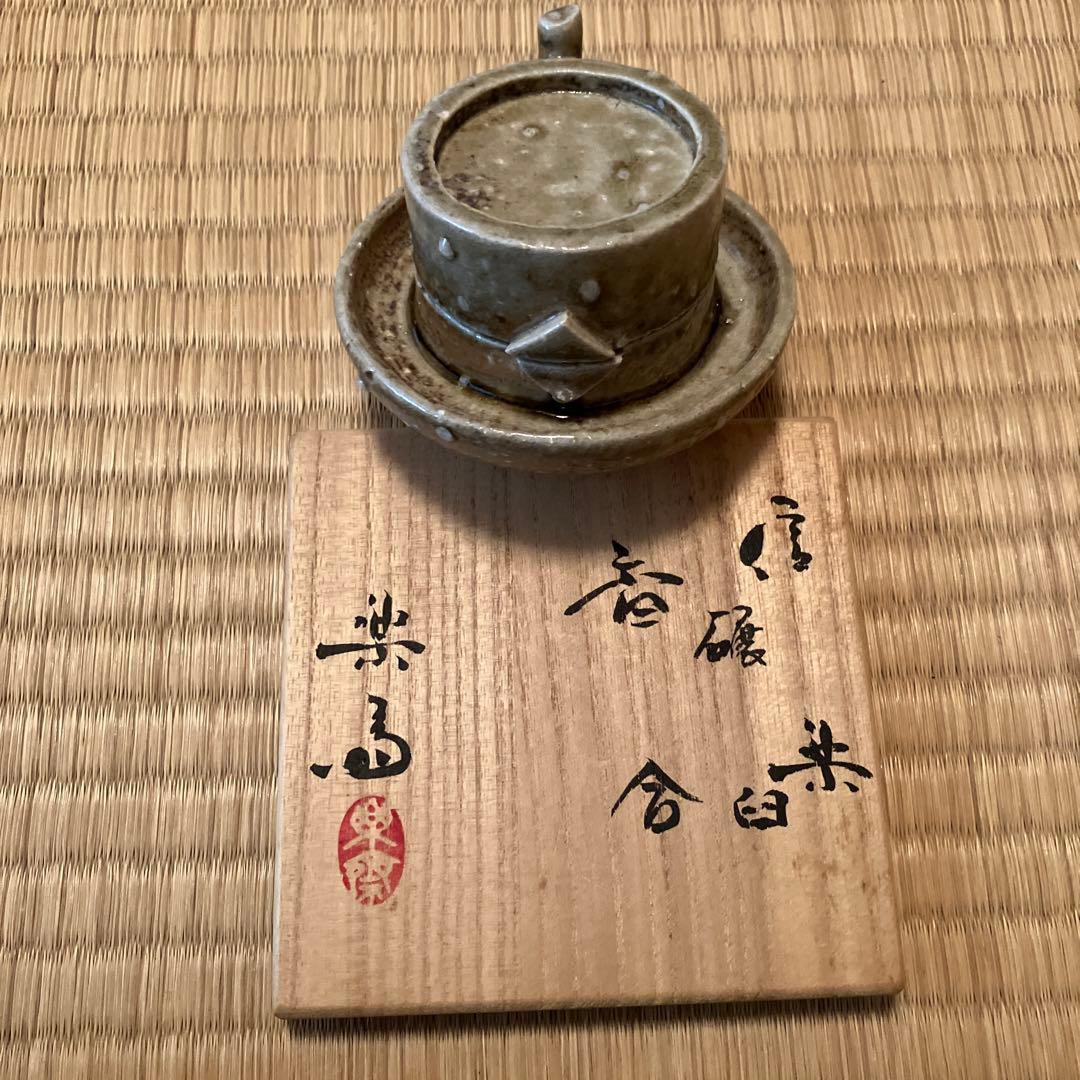 信楽
碾臼
香合
楽斎